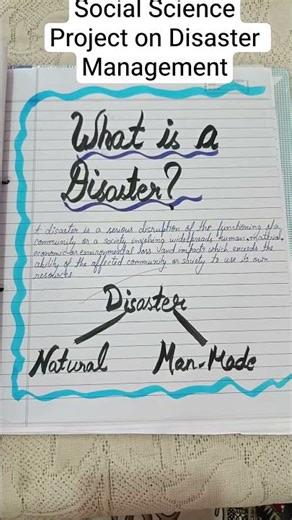 Social Science
Project on Disaster
Management
What is a
Disaster?
A disaster is a serious disruption of the functioning of a
community or a society involving widespread human, material,
economic or environmental loss and impacts which exceeds the
ability of the affected community or society to use its own
resources
Disaster
Natural
Man-Made